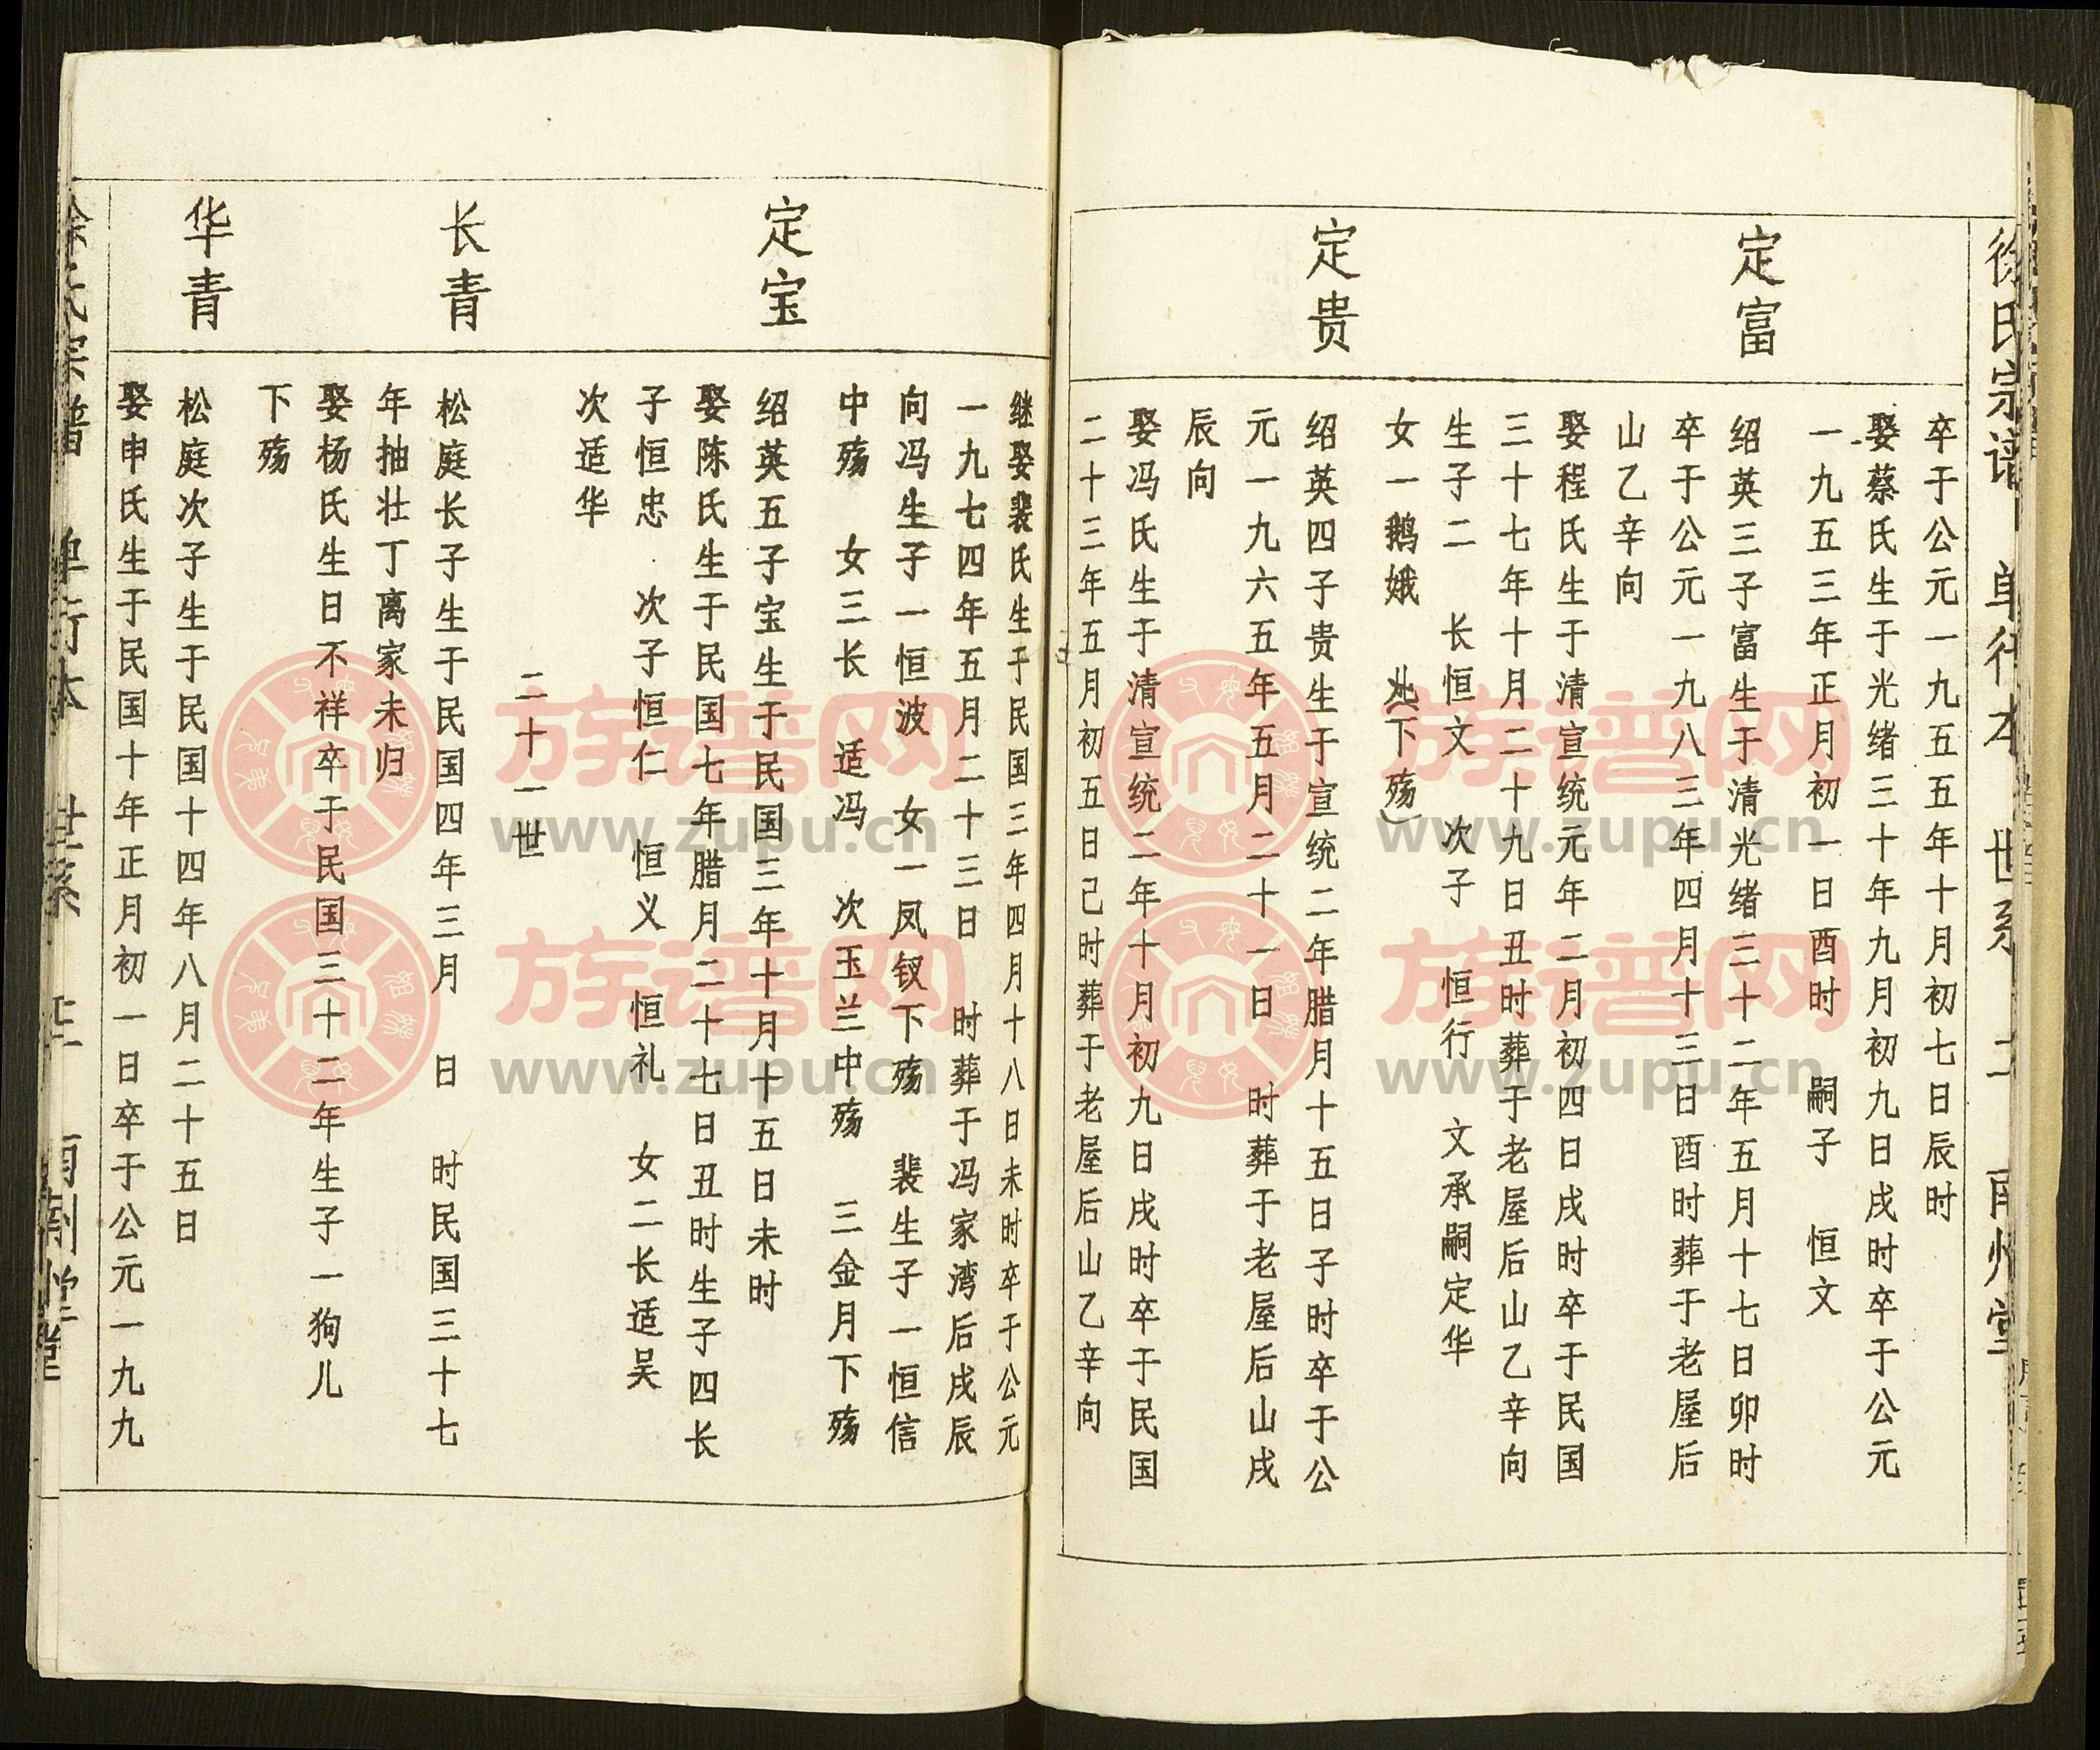 徐氏宗谱 单行本 世系 南州堂
卒于公元一九五五年十月初七日辰时
娶蔡氏生于光绪三十年九月初九日戌时卒于公元
一九五三年正月初一日酉时 嗣子 恒文
定富
绍英三子富生于清光绪三十二年五月十七日卯时
卒于公元一九八三年四月十三日酉时葬于老屋后
山乙辛向
娶程氏生于清宣统元年二月初四日戌时卒于民国
三十七年十月二十九日丑时葬于老屋后山乙辛向
生子二 长恒文 次子 恒行 文承嗣定华
女一鹅娥 (下殇)
定贵
绍英四子贵生于宣统二年腊月十五日子时卒于公
元一九六五年五月二十一日 时葬于老屋后山戌
辰向
娶冯氏生于清宣统二年十月初九日戌时卒于民国
二十三年五月初五日己时葬于老屋后山乙辛向
继娶裴氏生于民国三年四月十八日未时卒于公元
一九七四年五月二十三日 时葬于冯家湾后戌辰
向冯生子一恒波 女一凤钗下殇 裴生子一恒信
中殇 女三长 适冯 次玉兰中殇 三金月下殇
定宝
绍英五子宝生于民国三年十月十五日未时
娶陈氏生于民国七年腊月二十七日丑时生子四长
子恒忠 次子恒仁 恒义 恒礼 女二长适吴
次适华
二十一世
长青
松庭长子生于民国四年三月 日 时民国三十七
年抽壮丁离家未归
娶杨氏生日不祥卒于民国三十二年生子一狗儿
下殇
华青
松庭次子生于民国十四年八月二十五日
娶申氏生于民国十年正月初一日卒于公元一九九
族谱网
www.zupu.cn
族谱网
www.zupu.cn
族谱网
www.zupu.cn
族谱网
www.zupu.cn